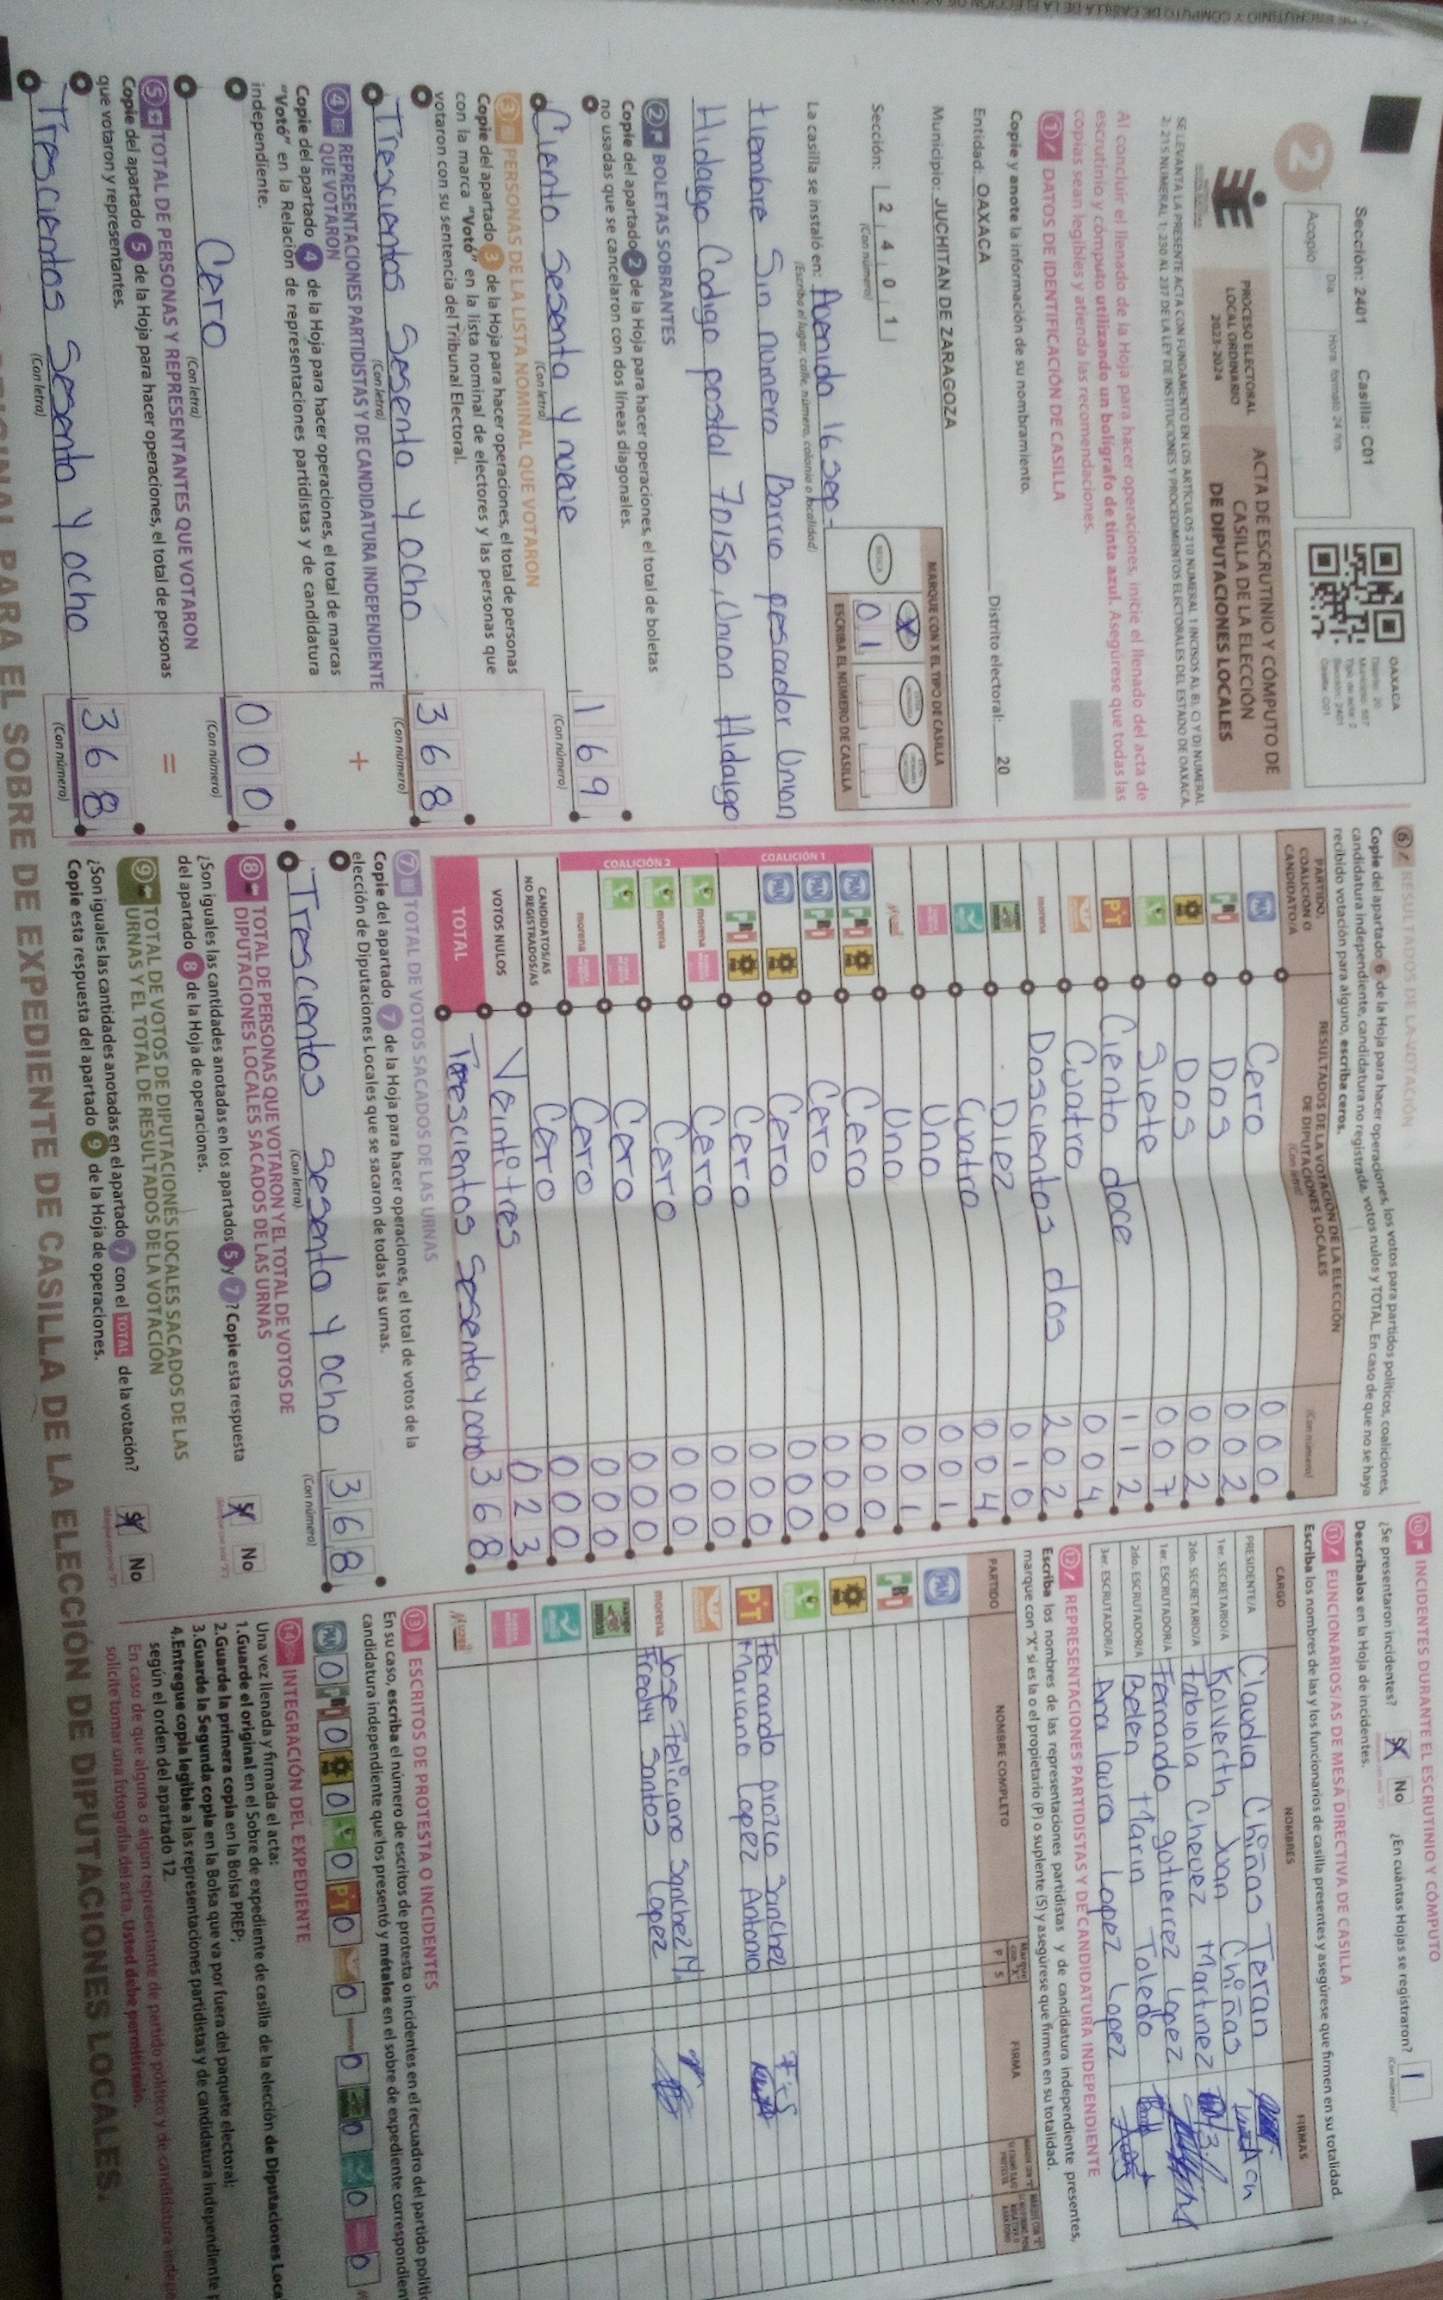 Sección: 2401 Casilla: C01
Día Hora: formato 24 hrs
Acopio
2
OAXACA
Distrito: 20
Sección: 2401
Casilla: C01
PROCESO ELECTORAL
LOCAL ORDINARIO
2023-2024
ACTA DE ESCRUTINIO Y CÓMPUTO DE
CASILLA DE LA ELECCIÓN
DE DIPUTACIONES LOCALES
SE LEVANTA LA PRESENTE ACTA CON FUNDAMENTO EN LOS ARTÍCULOS 210 NUMERAL 1 INCISOS A), B), C) Y D) NUMERAL
2; 215 NUMERAL 1; 230 AL 237 DE LA LEY DE INSTITUCIONES Y PROCEDIMIENTOS ELECTORALES DEL ESTADO DE OAXACA.
Al concluir el llenado de la Hoja para hacer operaciones, inicie el llenado del acta de
escrutinio y cómputo utilizando un bolígrafo de tinta azul. Asegúrese que todas las
copias sean legibles y atienda las recomendaciones.
1 DATOS DE IDENTIFICACIÓN DE CASILLA
Copie y anote la información de su nombramiento.
Entidad: OAXACA Distrito electoral: 20
Municipio: JUCHITAN DE ZARAGOZA
Sección: 2 4 0 1
(Con número)
MARQUE CON X EL TIPO DE CASILLA
X
0 1
ESCRIBA EL NÚMERO DE CASILLA
La casilla se instaló en: Avenida 16 sep-
(Escriba el lugar, calle, número, colonia o localidad)
tiembre Sin numero Barrio pescador Union
Hidalgo Codigo postal 70150, Union Hidalgo
2 BOLETAS SOBRANTES
Copie del apartado 2 de la Hoja para hacer operaciones, el total de boletas
no usadas que se cancelaron con dos líneas diagonales.
Ciento sesenta y nueve 1 6 9
(Con letra) (Con número)
3 PERSONAS DE LA LISTA NOMINAL QUE VOTARON
Copie del apartado 3 de la Hoja para hacer operaciones, el total de personas
con la marca "Votó" en la lista nominal de electores y las personas que
votaron con su sentencia del Tribunal Electoral.
Trescientos Sesenta y ocho 3 6 8
(Con letra) (Con número)
4 REPRESENTACIONES PARTIDISTAS Y DE CANDIDATURA INDEPENDIENTE
QUE VOTARON +
Copie del apartado 4 de la Hoja para hacer operaciones, el total de marcas
"Votó" en la Relación de representaciones partidistas y de candidatura
independiente.
Cero 0 0 0
(Con letra) (Con número)
5 TOTAL DE PERSONAS Y REPRESENTANTES QUE VOTARON =
Copie del apartado 5 de la Hoja para hacer operaciones, el total de personas
que votaron y representantes.
Trescientos Sesenta y ocho 3 6 8
(Con letra) (Con número)
6 RESULTADOS DE LA VOTACIÓN
Copie del apartado 6 de la Hoja para hacer operaciones, los votos para partidos políticos, coaliciones,
candidatura independiente, candidatura no registrada, votos nulos y TOTAL. En caso de que no se haya
recibido votación para alguno, escriba ceros.
PARTIDO, COALICIÓN O CANDIDATO/A
RESULTADOS DE LA VOTACIÓN DE LA ELECCIÓN DE DIPUTACIONES LOCALES
(Con letra) (Con número)
PAN Cero 0 0 0
PRI Dos 0 0 2
PRD Dos 0 0 2
Siete 0 0 7
PT Ciento doce 1 1 2
Cuatro 0 0 4
morena Doscientos dos 2 0 2
Diez 0 1 0
Cuatro 0 0 4
Uno 0 0 1
Uno 0 0 1
COALICIÓN 1
PAN PRI PRD Cero 0 0 0
PAN PRI Cero 0 0 0
PAN PRD Cero 0 0 0
PRI PRD Cero 0 0 0
COALICIÓN 2
morena Cero 0 0 0
morena Cero 0 0 0
Cero 0 0 0
morena Cero 0 0 0
CANDIDATOS/AS NO REGISTRADOS/AS Cero 0 0 0
VOTOS NULOS Veintitres 0 2 3
TOTAL Trescientos Sesenta y ocho 3 6 8
7 TOTAL DE VOTOS SACADOS DE LAS URNAS
Copie del apartado 7 de la Hoja para hacer operaciones, el total de votos de la
elección de Diputaciones Locales que se sacaron de todas las urnas.
Trescientos Sesenta y ocho 3 6 8
(Con letra) (Con número)
8 TOTAL DE PERSONAS QUE VOTARON Y EL TOTAL DE VOTOS DE
DIPUTACIONES LOCALES SACADOS DE LAS URNAS
¿Son iguales las cantidades anotadas en los apartados 5 y 7? Copie esta respuesta
del apartado 8 de la Hoja de operaciones.
Sí No
9 TOTAL DE VOTOS DE DIPUTACIONES LOCALES SACADOS DE LAS
URNAS Y EL TOTAL DE RESULTADOS DE LA VOTACIÓN
¿Son iguales las cantidades anotadas en el apartado 7 con el TOTAL de la votación?
Copie esta respuesta del apartado 9 de la Hoja de operaciones.
Sí No
10 INCIDENTES DURANTE EL ESCRUTINIO Y CÓMPUTO
¿Se presentaron incidentes? Sí No ¿En cuántas Hojas se registraron? 1
Descríbalos en la Hoja de incidentes.
11 FUNCIONARIOS/AS DE MESA DIRECTIVA DE CASILLA
Escriba los nombres de las y los funcionarios de casilla presentes y asegúrese que firmen en su totalidad.
CARGO NOMBRES FIRMAS
PRESIDENTE/A Claudia Chiñas Teran
1er. SECRETARIO/A Kolverth Juan Chiñas
2do. SECRETARIO/A Fabiola Chevez Martinez
1er. ESCRUTADOR/A Fernando gutierrez Lopez
2do. ESCRUTADOR/A Belen Marin Toledo
3er. ESCRUTADOR/A Ana laura Lopez Lopez
12 REPRESENTACIONES PARTIDISTAS Y DE CANDIDATURA INDEPENDIENTE
Escriba los nombres de las representaciones partidistas y de candidatura independiente presentes,
marque con "X" si es la o el propietario (P) o suplente (S) y asegúrese que firmen en su totalidad.
PARTIDO NOMBRE COMPLETO P S FIRMA
PAN
PRI
PRD
PT Fernando orozco Sanchez
Mariano Lopez Antonio
morena Jose Feliciano Sanchez M.
Freddy Santos Lopez
13 ESCRITOS DE PROTESTA O INCIDENTES
En su caso, escriba el número de escritos de protesta o incidentes en el recuadro del partido políti
candidatura independiente que los presentó y métalos en el sobre de expediente correspondien
PAN 0 PRI 0 PRD 0 0 PT 0 0 0 0 0 0
14 INTEGRACIÓN DEL EXPEDIENTE
Una vez llenada y firmada el acta:
1.Guarde el original en el Sobre de expediente de casilla de la elección de Diputaciones Loca
2.Guarde la primera copia en la Bolsa PREP;
3.Guarde la Segunda copia en la Bolsa que va por fuera del paquete electoral;
4.Entregue copia legible a las representaciones partidistas y de candidatura independiente
según el orden del apartado 12.
En caso de que alguna o algún representante de partido político y de candidatura indepe
solicite tomar una fotografía del acta. Usted debe permitírselo.
ORIGINAL PARA EL SOBRE DE EXPEDIENTE DE CASILLA DE LA ELECCIÓN DE DIPUTACIONES LOCALES.